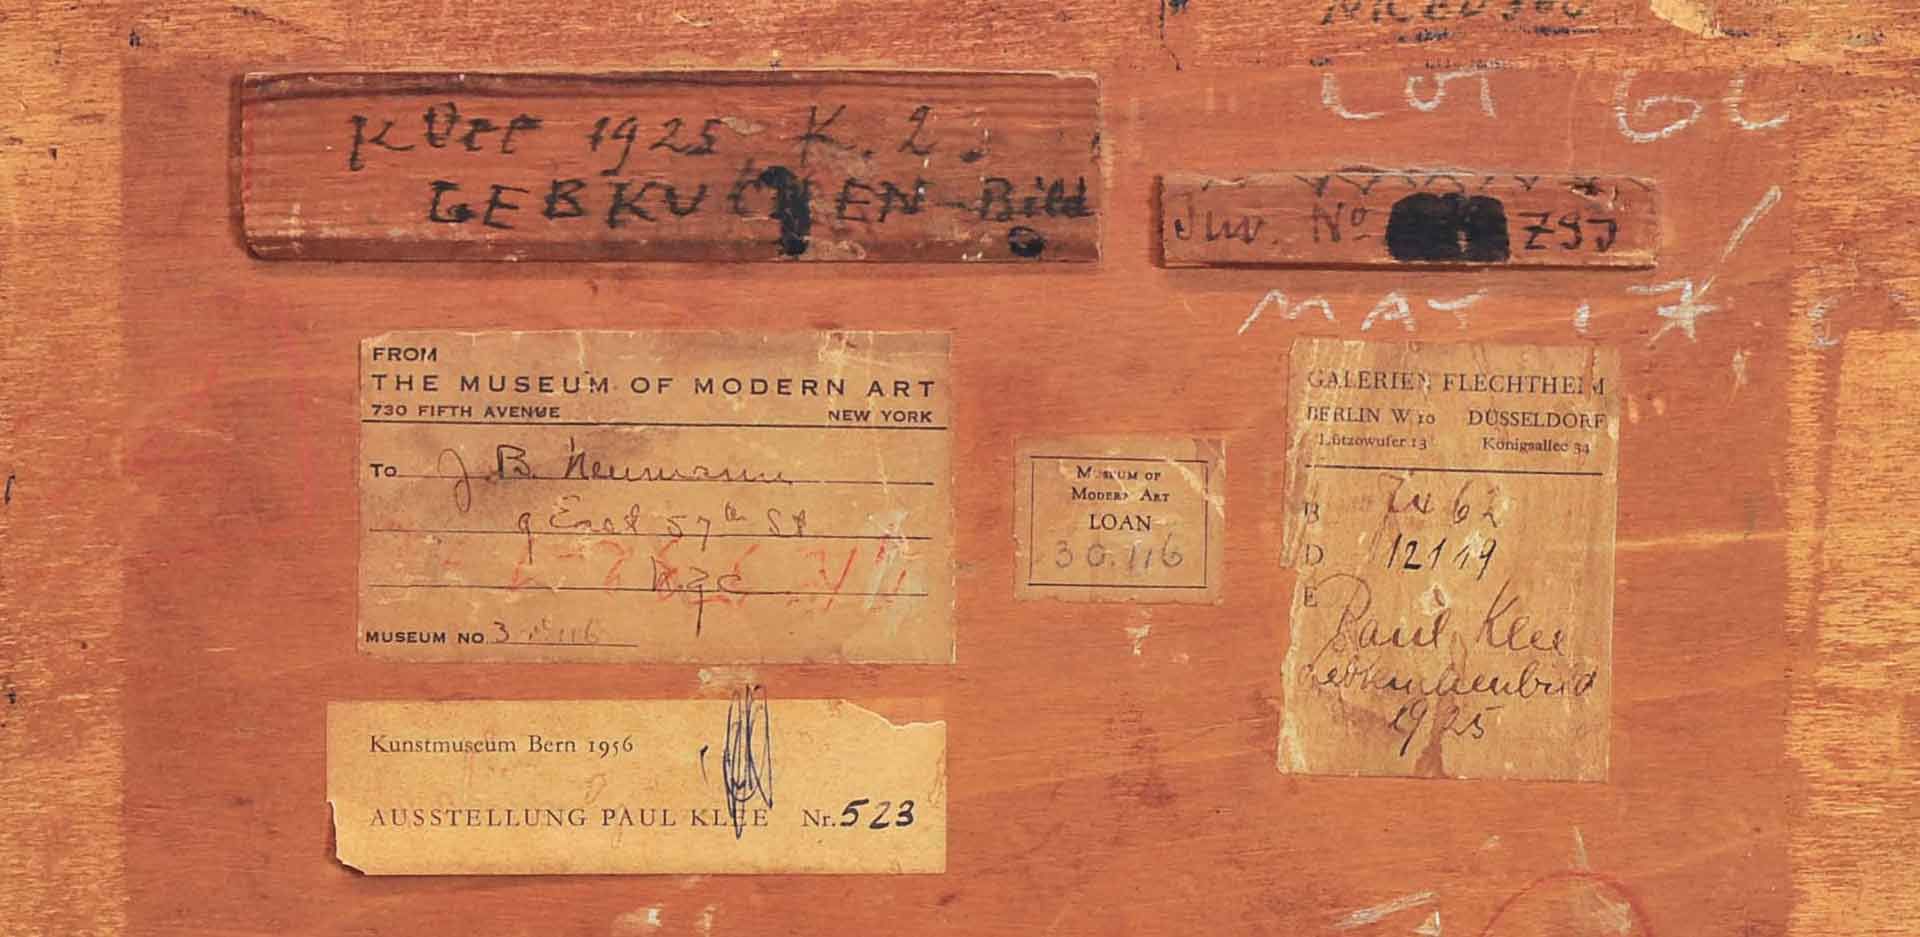 LOT
KLEE 1925 K. 2.
GEBKUCHEN-Bild
Inv. No
MAY 17
FROM
THE MUSEUM OF MODERN ART
730 FIFTH AVENUE NEW YORK
To J. B. Neumann
9 East 57th St
N.Y.C
MUSEUM NO. 30.116
MUSEUM OF
MODERN ART
LOAN
30.116
GALERIEN FLECHTHEIM
BERLIN W 10 DÜSSELDORF
Lützowufer 13 Königsallee 34
B
D 12119
E Paul Klee
Gebkuchenbild
1925
Kunstmuseum Bern 1956
AUSSTELLUNG PAUL KLEE Nr. 523